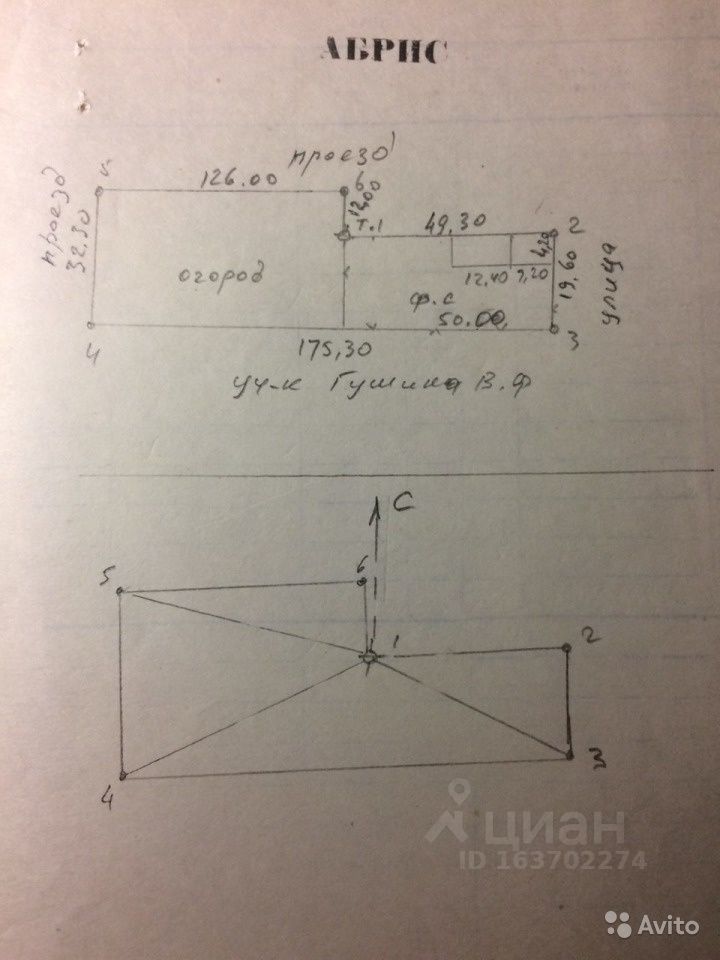 АБРИС
проезд
126.00
6
12,00
проезд
32.30
т.1
49,30
2
4,20
19,60
улица
огород
12,40
9,20
ф.с
50.00
4
175,30
3
уч-к Гушина В.Ф
С
5
6
1
2
3
4
циан
ID 163702274
Avito